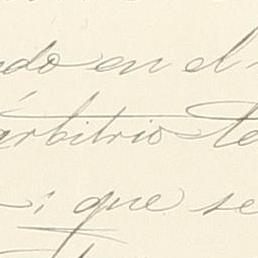 ado en el
arbitrio te
; que se